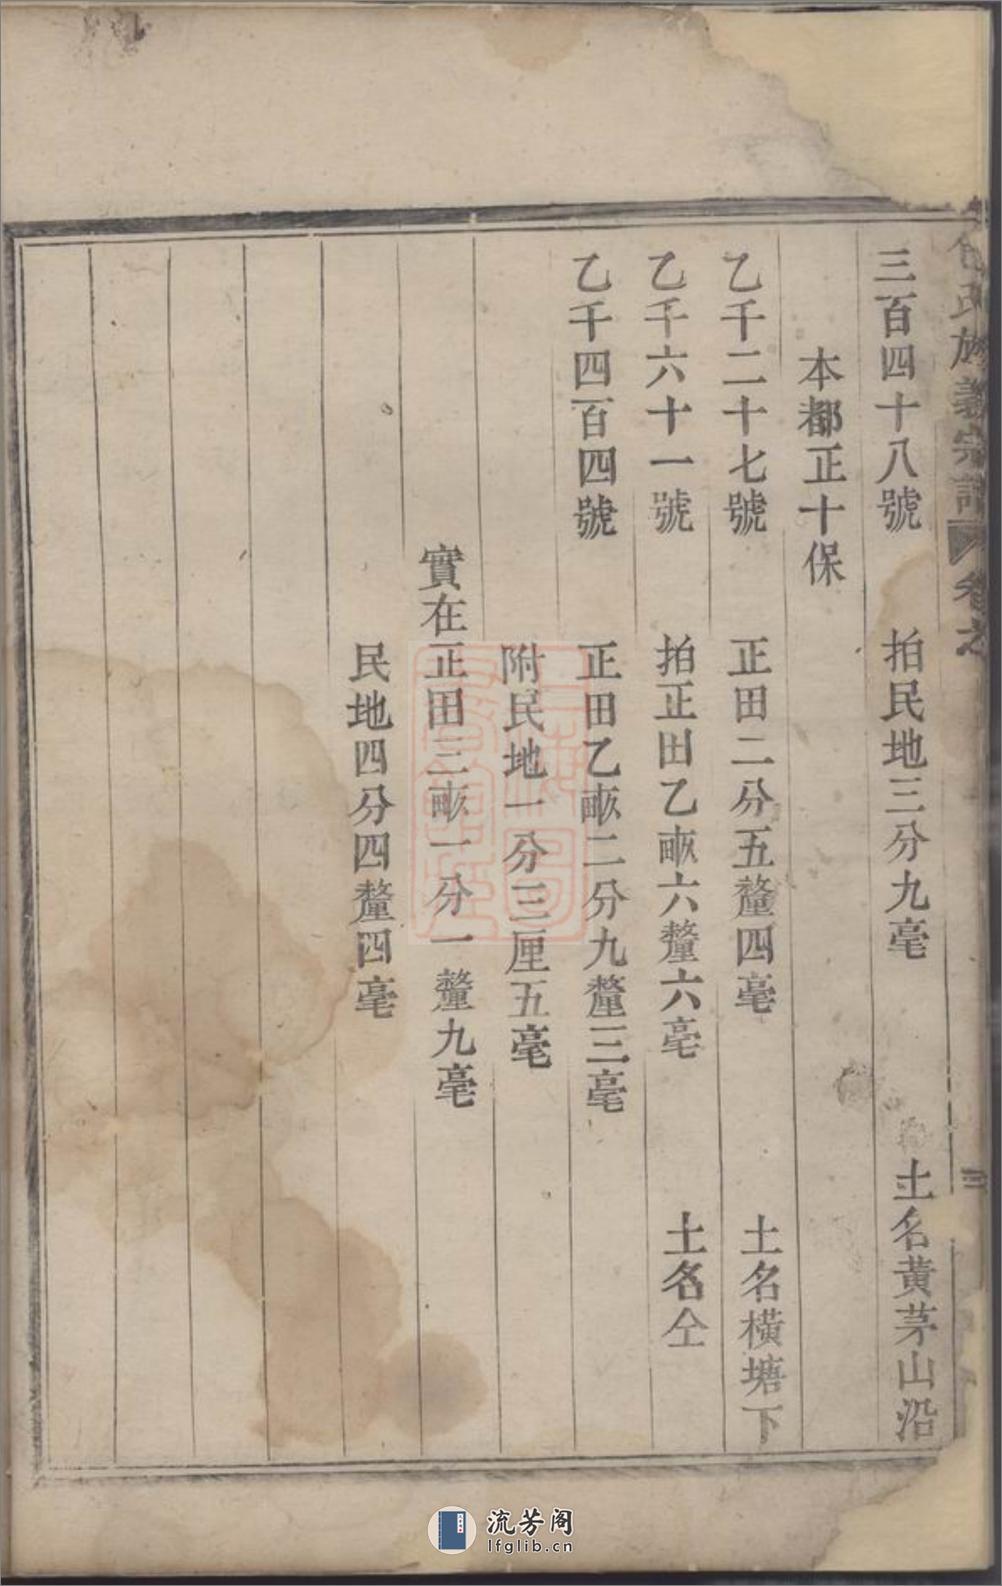 包氏族義宗譜 卷之
三百四十八號 拍民地三分九毫 土名黄茅山沿
本都正十保
乙千二十七號 正田二分五釐四毫 土名橫塘下
乙千六十一號 拍正田乙畝六釐六毫 土名仝
乙千四百四號 正田乙畝二分九釐三毫
附民地一分三厘五毫
實在正田三畝一分一釐九毫
民地四分四釐四毫
流芳阁
lfglib.cn